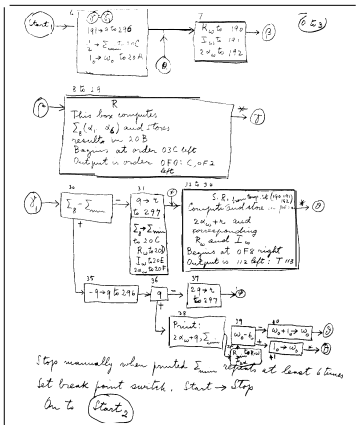 Start₁
6
191 → 2 to 296
½ → Σmm to 20C
l₀ → ω₀ to 20A
7
Rω to 190
Iω to 191
2αω to 192
β
θ
8 to 29
R
This box computes
Σ₈(α, α₆) and stores
results in 20B
Begins at order 03C left
Output is order 0F0: C, 0F2
left
γ
30
Σ₈ - Σmm
31
9 → r
to 297
Σ₈ → Σmm
to 20C
Rω to 20D
Iω to 20E
2αω to 20F
32 to 34
Compute and store
2αω + r and
corresponding
Rω and Iω
Begins at 0F8 right
Output is 112 left: T 113
35
-9 → 9 to 296
36
9
37
29 → r
to 297
38
Print:
2αω + 9, Σmm
39
40
ω₀ + l₀ → ω₀
41
l₀ → ω₀
Stop manually when printed Σmm repeats at least 6 times
Set break point switch. Start → Stop
On to Start₂